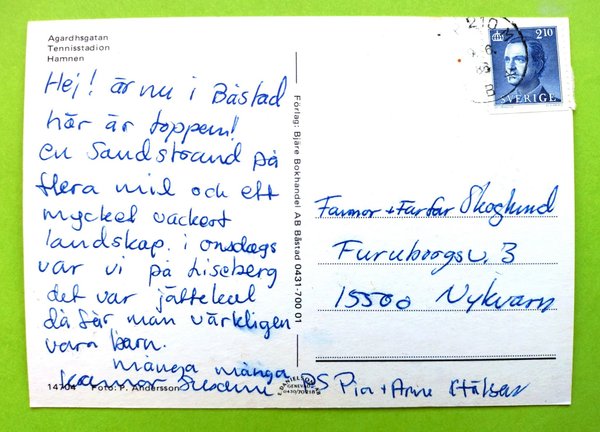 Agardhsgatan
Tennisstadion
Hamnen
Hej! är nu i Båstad
här är toppen!
en Sandstrand på
flera mil och ett
mycket vackert
landskap. i onsdags
var vi på Liseberg
det var jättekul
då får man värkligen
vara barn.
många många
kramar Susanne
14704 Foto: P. Andersson
Förlag: Bjäre Bokhandel AB Båstad 0431-700 01
210
SVERIGE
Farmor + Farfar Skoglund
Furuborgsv. 3
15500 Nykvarn
PS Pia + Arne Hälsar